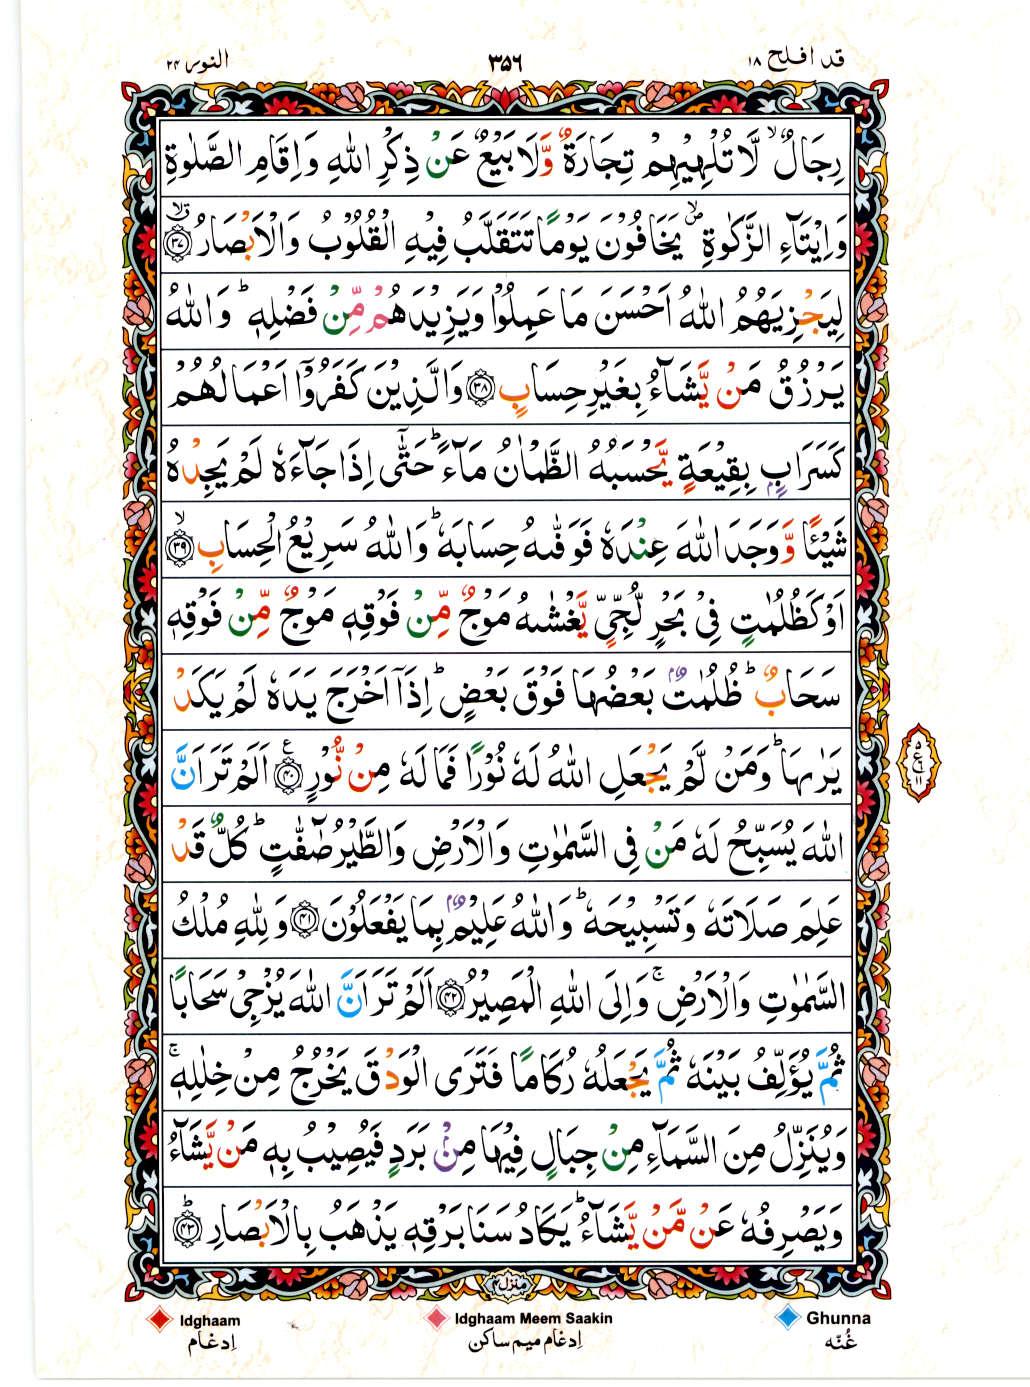 قد افلح ۱۸
۳۵٦
النور ۲۴
رِجَالٌ ۙ لَّا تُلْهِيْهِمْ تِجَارَةٌ وَّلَا بَيْعٌ عَنْ ذِكْرِ اللّٰهِ وَاِقَامِ الصَّلٰوةِ
وَاِيْتَآءِ الزَّكٰوةِ ۙ يَخَافُوْنَ يَوْمًا تَتَقَلَّبُ فِيْهِ الْقُلُوْبُ وَالْاَبْصَارُ ۙ ﴿۳۷﴾
لِيَجْزِيَهُمُ اللّٰهُ اَحْسَنَ مَا عَمِلُوْا وَيَزِيْدَهُمْ مِّنْ فَضْلِهٖ ؕ وَاللّٰهُ
يَرْزُقُ مَنْ يَّشَآءُ بِغَيْرِ حِسَابٍ ﴿۳۸﴾ وَالَّذِيْنَ كَفَرُوْٓا اَعْمَالُهُمْ
كَسَرَابٍۭ بِقِيْعَةٍ يَّحْسَبُهُ الظَّمْاٰنُ مَآءً ؕ حَتّٰٓى اِذَا جَآءَهٗ لَمْ يَجِدْهُ
شَيْـًٔا وَّوَجَدَ اللّٰهَ عِنْدَهٗ فَوَفّٰىهُ حِسَابَهٗ ؕ وَاللّٰهُ سَرِيْعُ الْحِسَابِ ۙ ﴿۳۹﴾
اَوْ كَظُلُمٰتٍ فِيْ بَحْرٍ لُّجِّيٍّ يَّغْشٰىهُ مَوْجٌ مِّنْ فَوْقِهٖ مَوْجٌ مِّنْ فَوْقِهٖ
سَحَابٌ ؕ ظُلُمٰتٌۢ بَعْضُهَا فَوْقَ بَعْضٍ ؕ اِذَآ اَخْرَجَ يَدَهٗ لَمْ يَكَدْ
يَرٰىهَا ؕ وَمَنْ لَّمْ يَجْعَلِ اللّٰهُ لَهٗ نُوْرًا فَمَا لَهٗ مِنْ نُّوْرٍ ﴿۴۰﴾ ع اَلَمْ تَرَ اَنَّ
اللّٰهَ يُسَبِّحُ لَهٗ مَنْ فِى السَّمٰوٰتِ وَالْاَرْضِ وَالطَّيْرُ صٰٓفّٰتٍ ؕ كُلٌّ قَدْ
عَلِمَ صَلَاتَهٗ وَتَسْبِيْحَهٗ ؕ وَاللّٰهُ عَلِيْمٌۢ بِمَا يَفْعَلُوْنَ ﴿۴۱﴾ وَلِلّٰهِ مُلْكُ
السَّمٰوٰتِ وَالْاَرْضِ ۚ وَاِلَى اللّٰهِ الْمَصِيْرُ ﴿۴۲﴾ اَلَمْ تَرَ اَنَّ اللّٰهَ يُزْجِيْ سَحَابًا
ثُمَّ يُؤَلِّفُ بَيْنَهٗ ثُمَّ يَجْعَلُهٗ رُكَامًا فَتَرَى الْوَدْقَ يَخْرُجُ مِنْ خِلٰلِهٖ ۚ
وَيُنَزِّلُ مِنَ السَّمَآءِ مِنْ جِبَالٍ فِيْهَا مِنْۢ بَرَدٍ فَيُصِيْبُ بِهٖ مَنْ يَّشَآءُ
وَيَصْرِفُهٗ عَنْ مَّنْ يَّشَآءُ ؕ يَكَادُ سَنَا بَرْقِهٖ يَذْهَبُ بِالْاَبْصَارِ ؕ ﴿۴۳﴾
منزل ۴
Ghunna
غُنّه
Idghaam Meem Saakin
اِدغام میم ساکن
Idghaam
اِدغام